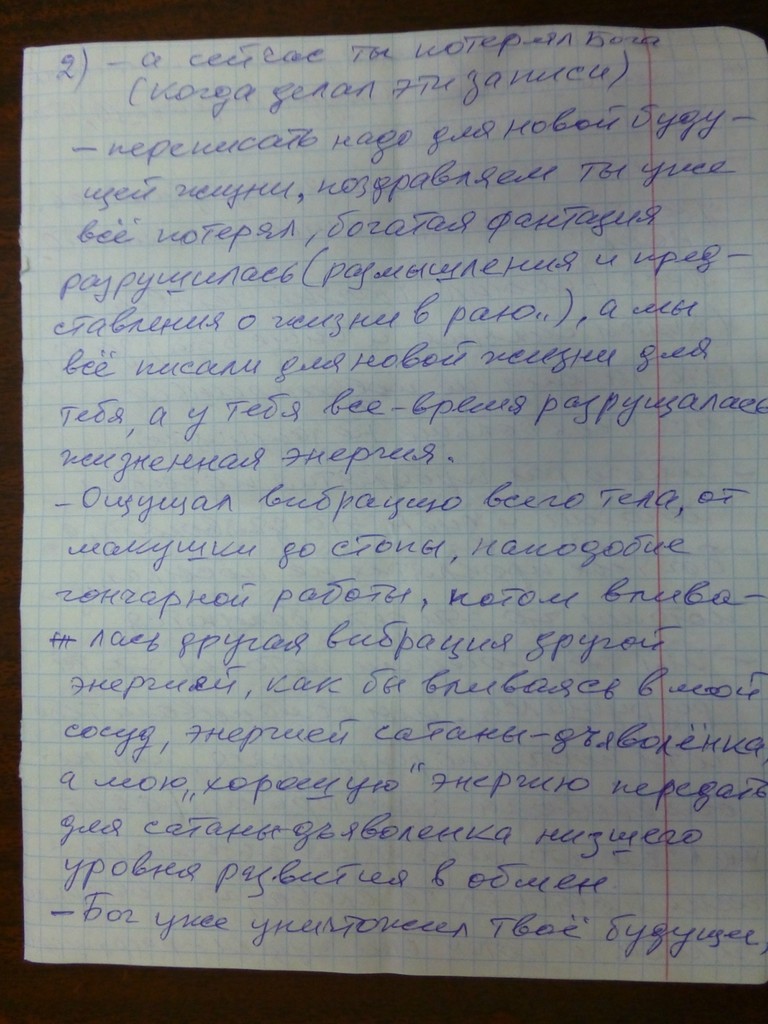 2) – а сейчас ты потерял Бога
(когда делал эти записи)
– переписать надо для новой буду-
щей жизни, поздравляем ты уже
всё потерял, богатая фантазия
разрушилась (размышления и пред-
ставления о жизни в раю..), а мы
всё писали для новой жизни для
тебя, а у тебя все-время разрущалась
жизненная энергия.
– Ощущал вибрацию всего тела, от
макушки до стопы, наподобие
гончарной работы, потом влива-
лась другая вибрация другой
энергией, как бы вливаясь в мой
сосуд, энергией сатаны-дъяволёнка,
а мою „хорошую" энергию передать
для сатаны-дьяволенка низшего
уровня развития в обмен
– Бог уже уничтожил твоё будущее,